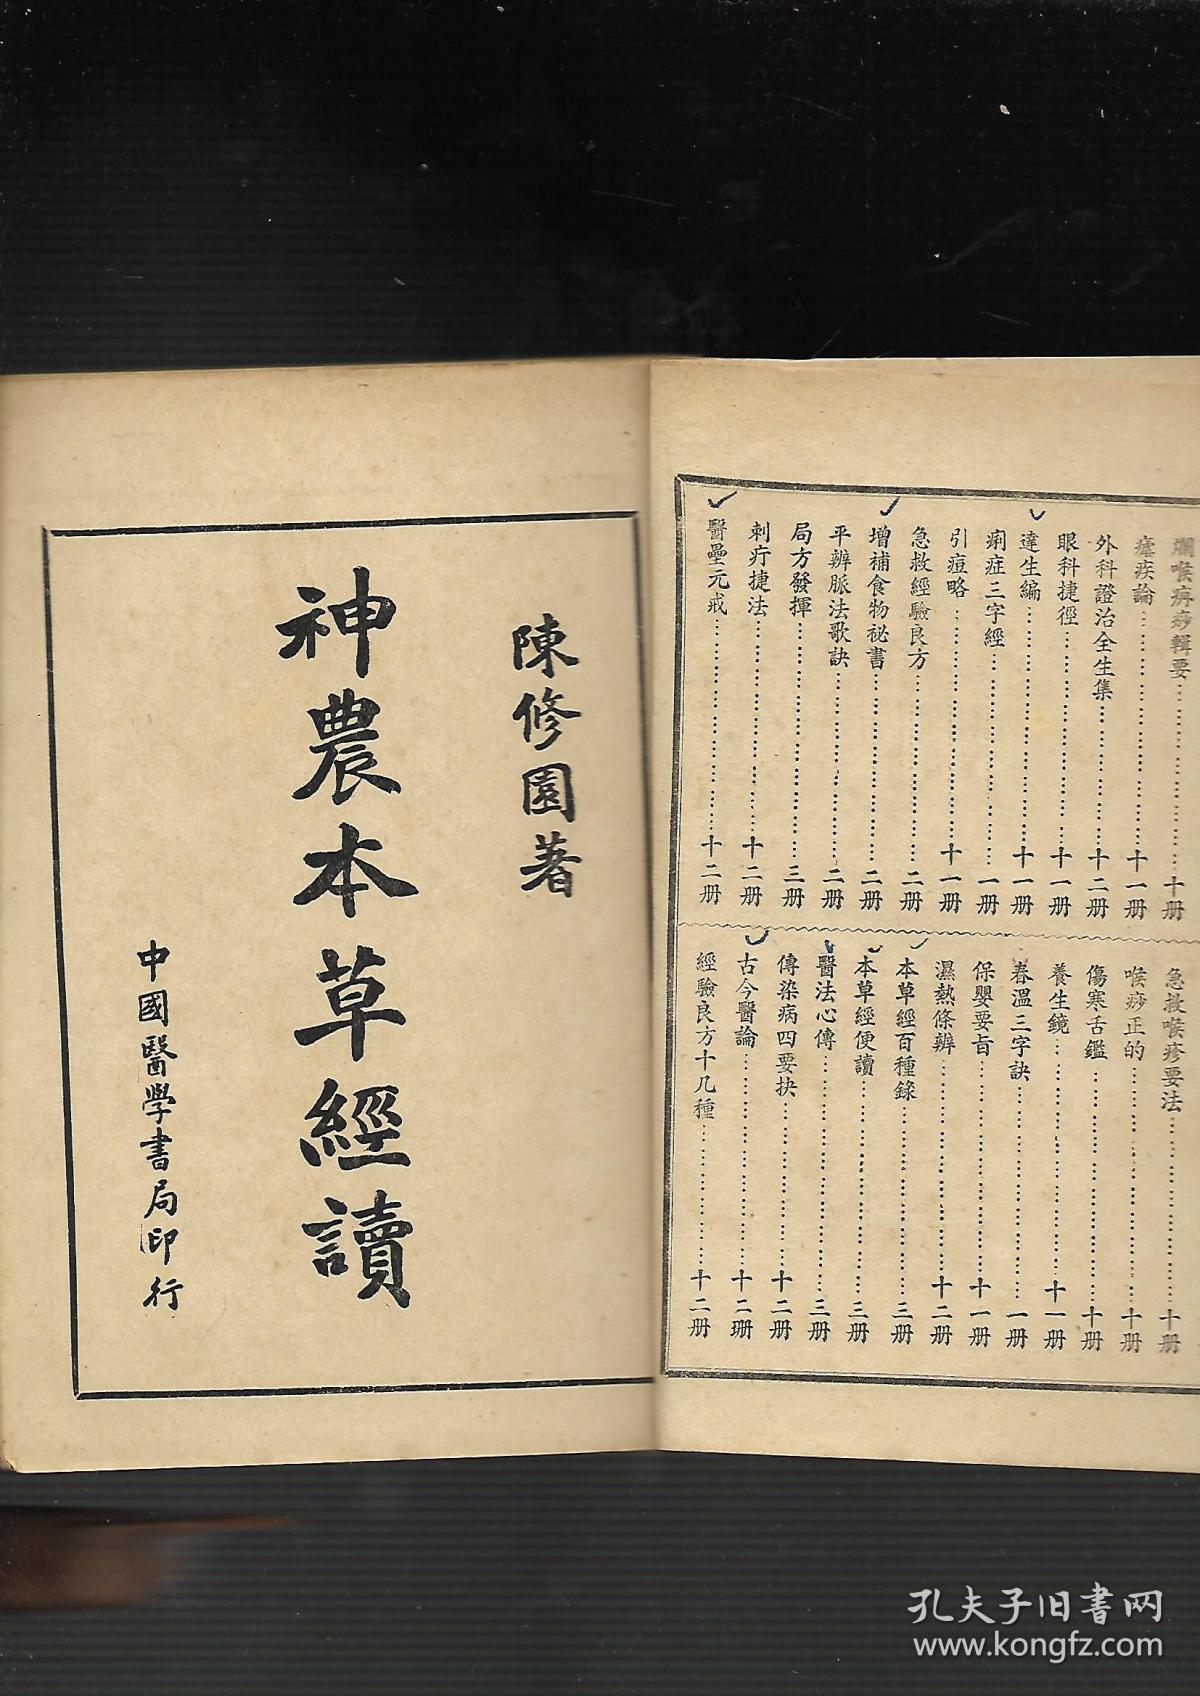 爛喉痹痧輯要………十册
瘧疾論………十一册
外科證治全生集………十二册
眼科捷徑………十一册
達生編………十一册
痢症三字經………一册
引痘略………十一册
急救經驗良方………二册
增補食物祕書………二册
平辨脈法歌訣………二册
局方發揮………三册
刺疔捷法………十二册
醫壘元戎………十二册
急救喉疹要法………十册
喉痧正的………十册
傷寒舌鑑………十册
養生鏡………十一册
春溫三字訣………一册
保嬰要旨………十一册
濕熱條辨………十二册
本草經百種錄………三册
本草經便讀………三册
醫法心傳………三册
傳染病四要抉………十二册
古今醫論………十二册
經驗良方十几種………十二册
陳修園著
神農本草經讀
中國醫學書局印行
孔夫子旧书网
www.kongfz.com